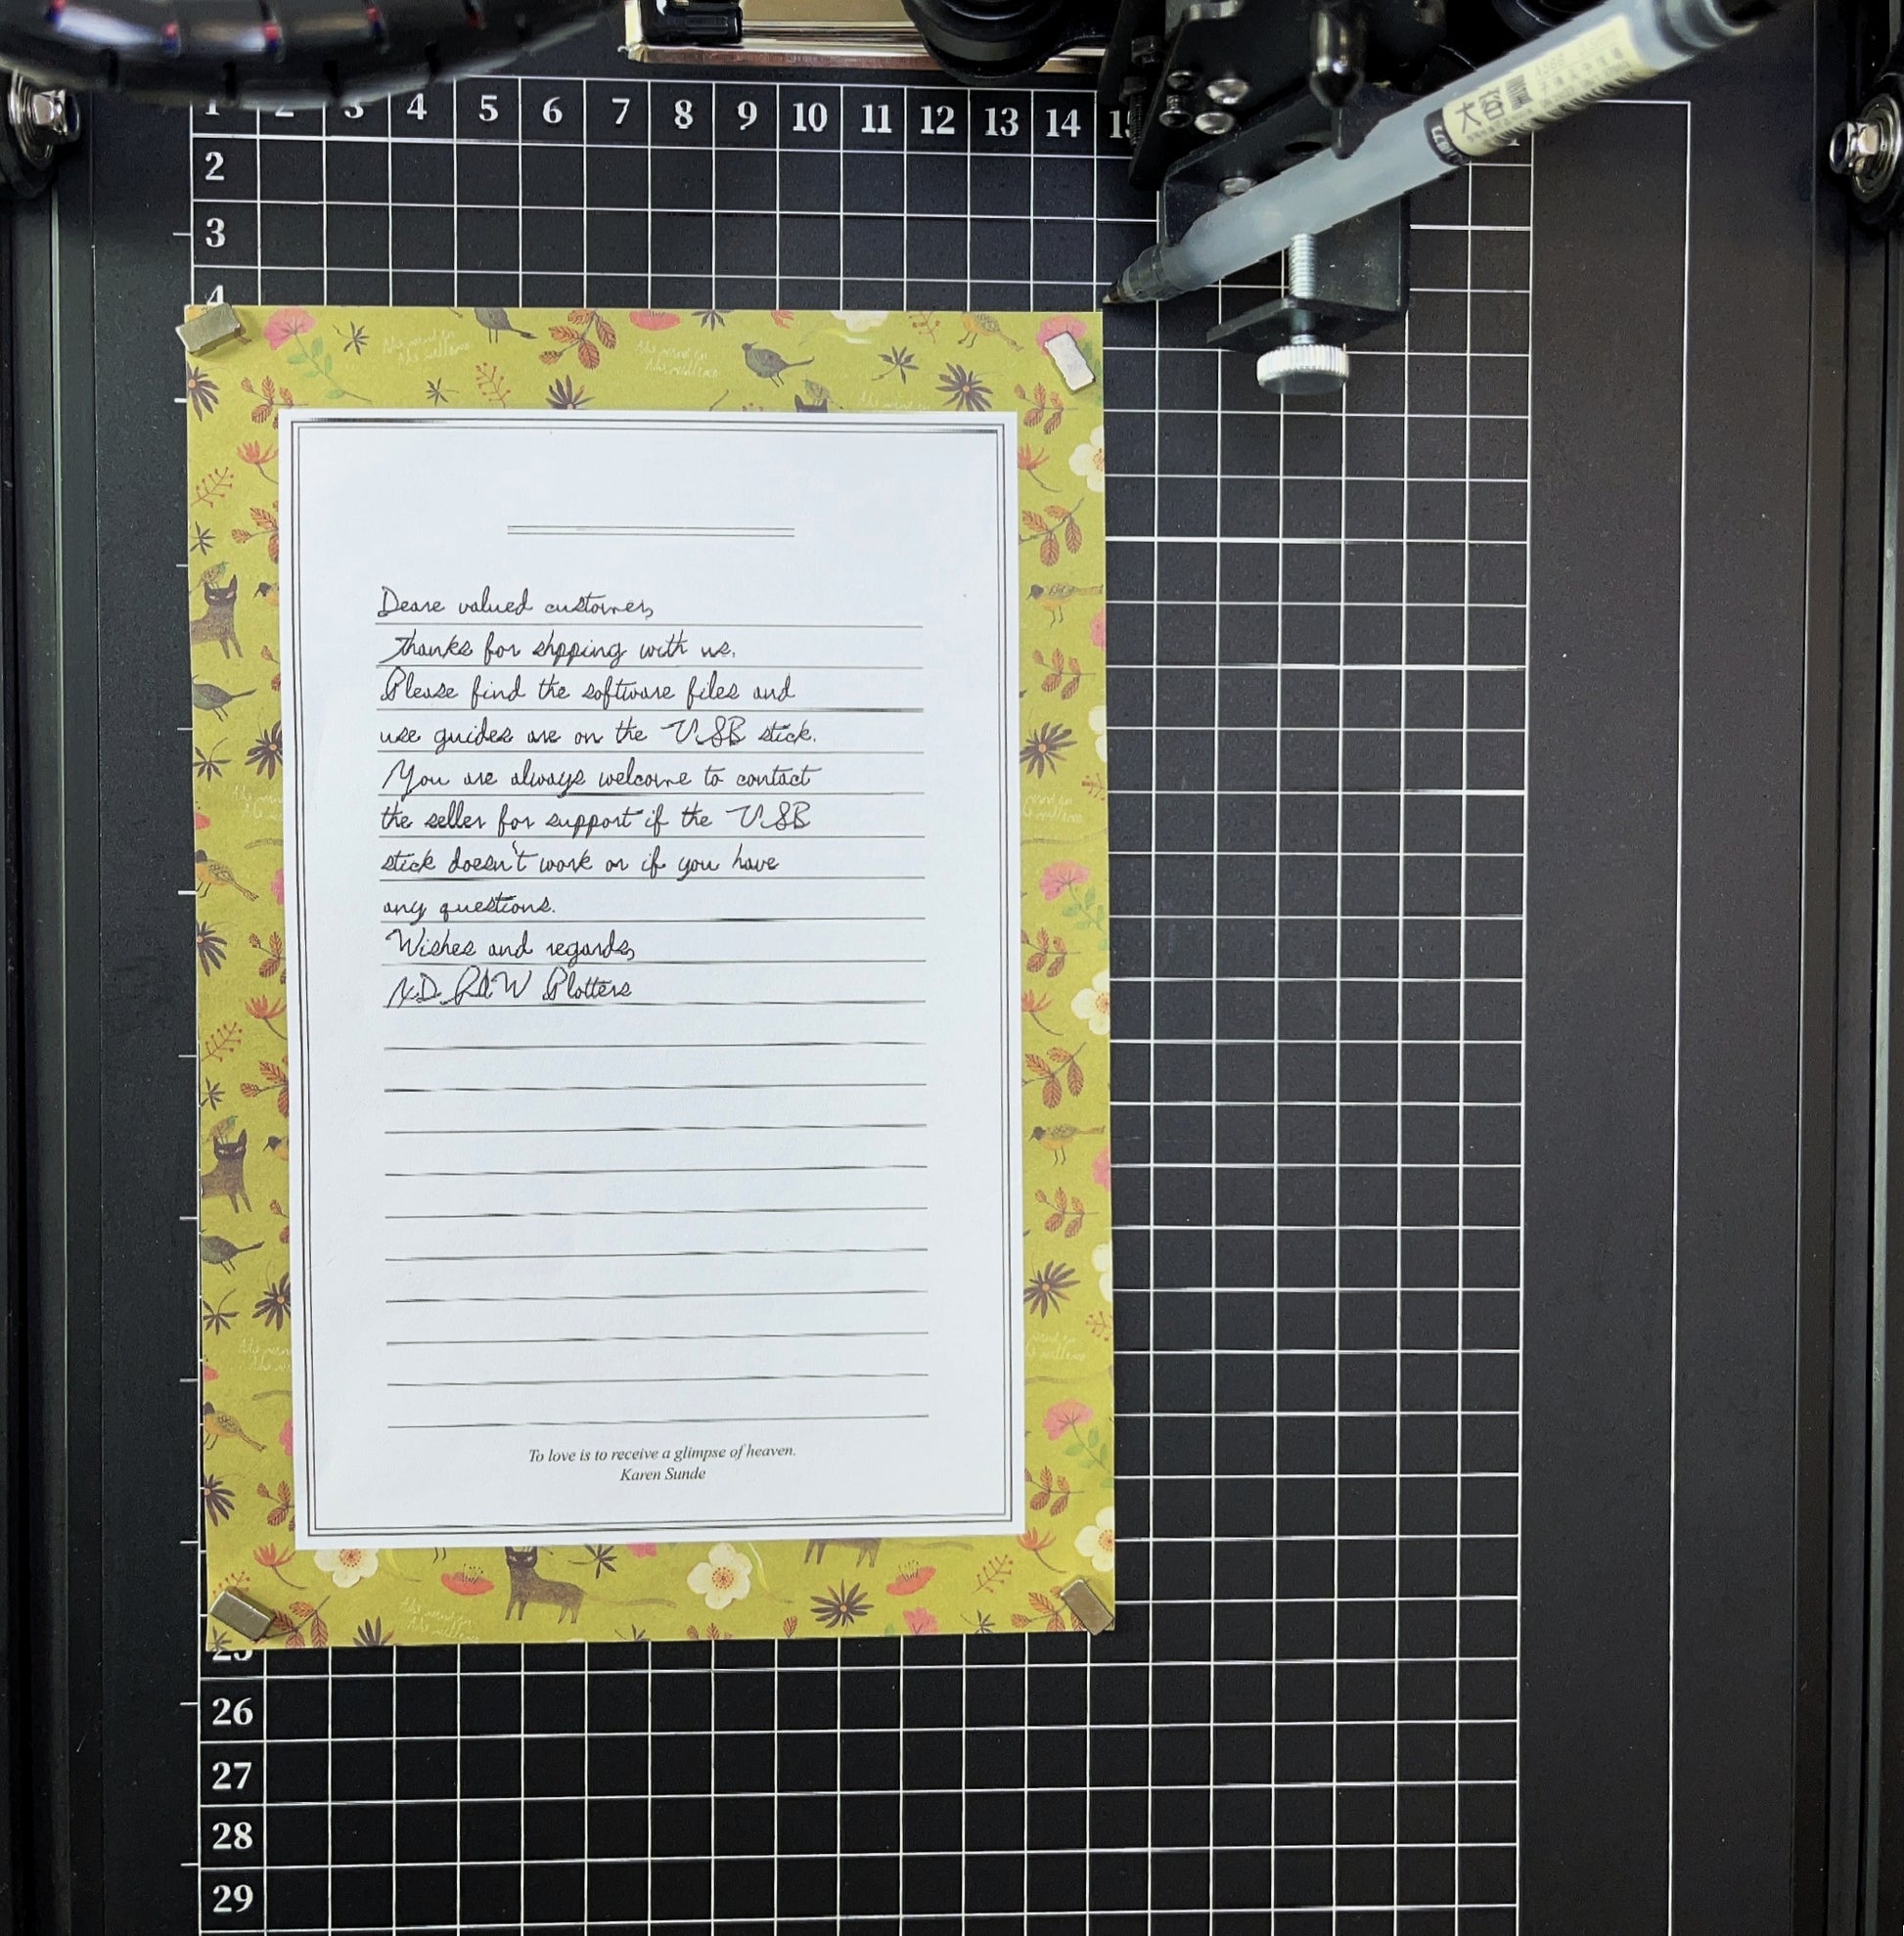 1 2 3 4 5 6 7 8 9 10 11 12 13 14 15
2
3
4
大容量
Deare valued customer,
Thanks for shpping with us.
Please find the software files and
use guides are on the USB stick.
You are always welcome to contact
the seller for support if the USB
stick doesn't work or if you have
any questions.
Wishes and regards,
Plotters
To love is to receive a glimpse of heaven.
Karen Sunde
25
26
27
28
29